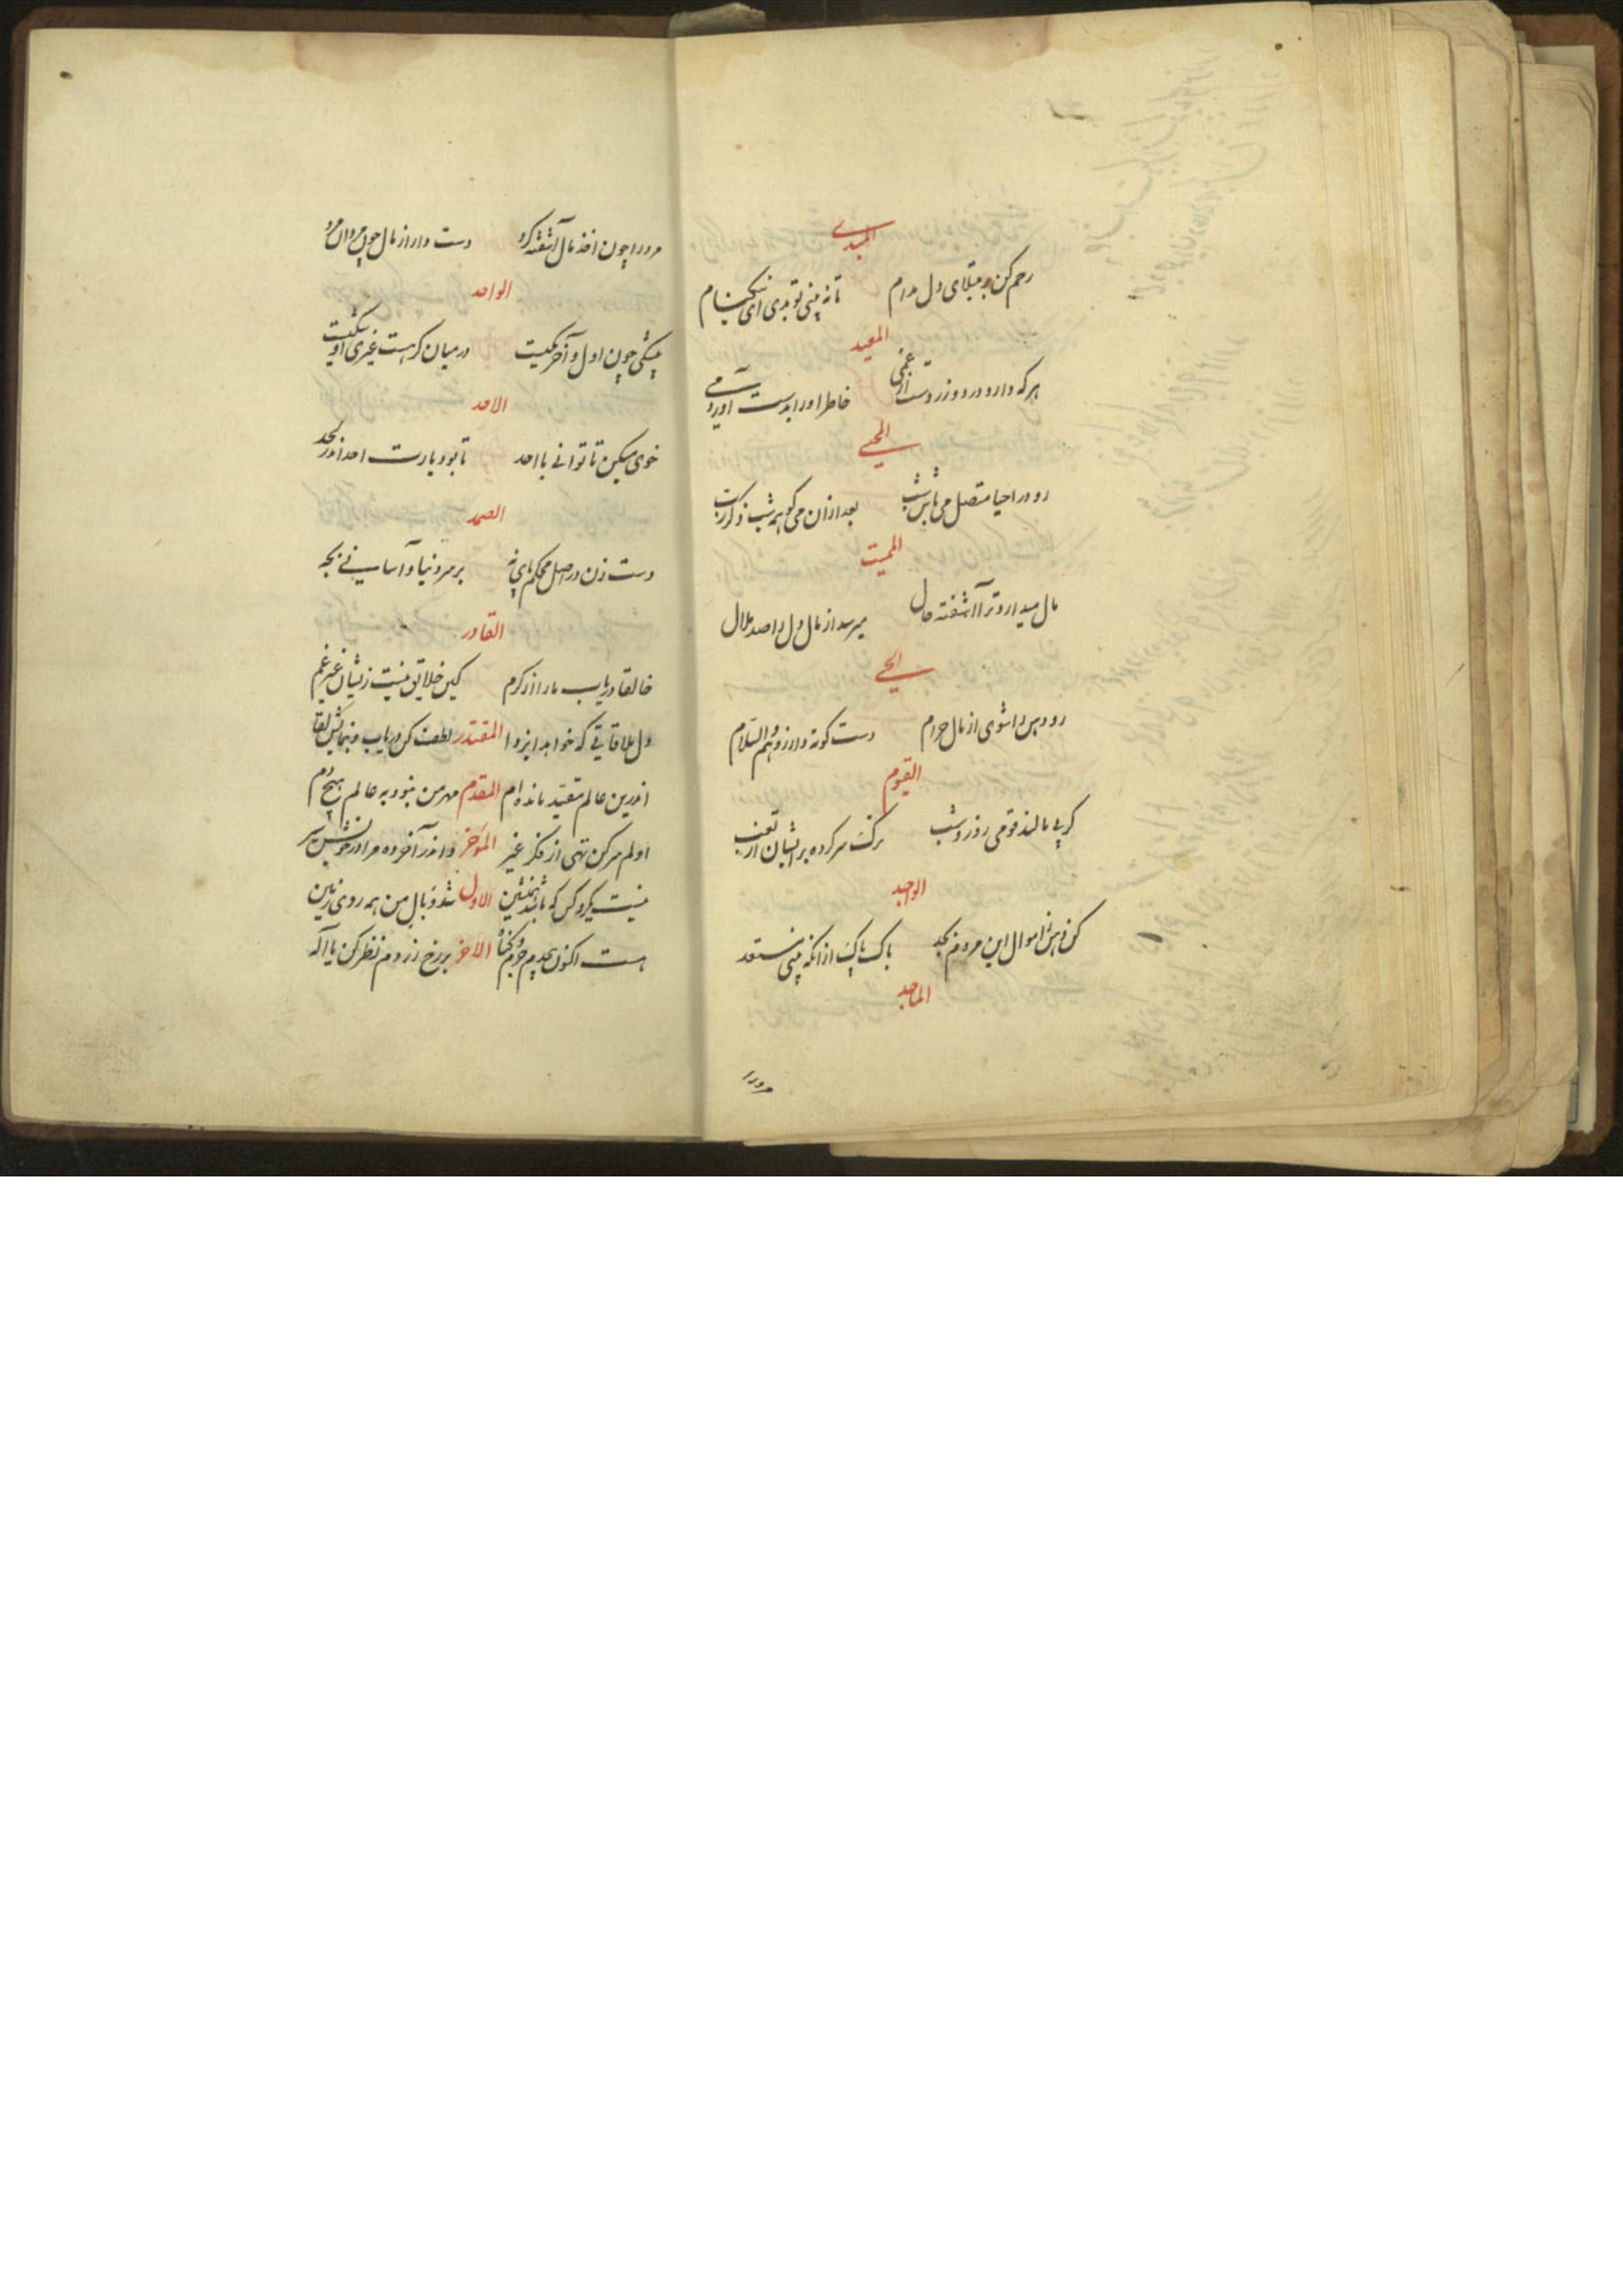 المبدی
رحم کن بر مبتلای دل مدام تا نه بینی تو بدی ای نیکنام
المعید
هر که دارد درد و زردست از غمی خاطر او را بدست آور دمی
المحیی
رو در احیا متصل می باش شب بعد ازان می کو همه شب ذکر رب
الممیت
مال میدارد ترا آشفته حال میرسد از مال دل را صد ملال
الحی
رو دهن را شوی از مال حرام دست کوته دار زو هم والسلام
القیوم
کر پی مالند قومی روز و شب سر کرده بر ایشان از تعب
الواجد
اموال این مردم بجد باک پاک از انکه بینی مستعد
الماجد
مرد را
مرد را چون اخذ مال آشفته کرد دست دار از مال چون مردان مرد
الواحد
بیشکی چون اول و آخر یکیست در میان کر هست غیری او شکیست
الاحد
خوی میکن تا توانی با احد تا بود یارت احد اندر لحد
الصمد
دست زن در اصل محکم پای نه بر سر دنیا و آسا نی بجه
القادر
خالقا دریاب ما را از کرم کین خلایق نیست زیشان غیر غم
دل ملاقاتی که خواهد ایزدا المقتدر لطف کن دریاب و بنمایش لقا
اندرین عالم مقید مانده ام المقدم مهر من نبود به عالم هیچ دم
اولم سر کن تهی از فکر غیر الموخر و اندر آخر ده مرا در خویش سیر
نیست یکرو کس که باشد همنشین الاول شد وبال من همه روی زمین
هست اکنون بیحدم جرم و کناه الاخر بر رخ زردم نظر کن یا اله